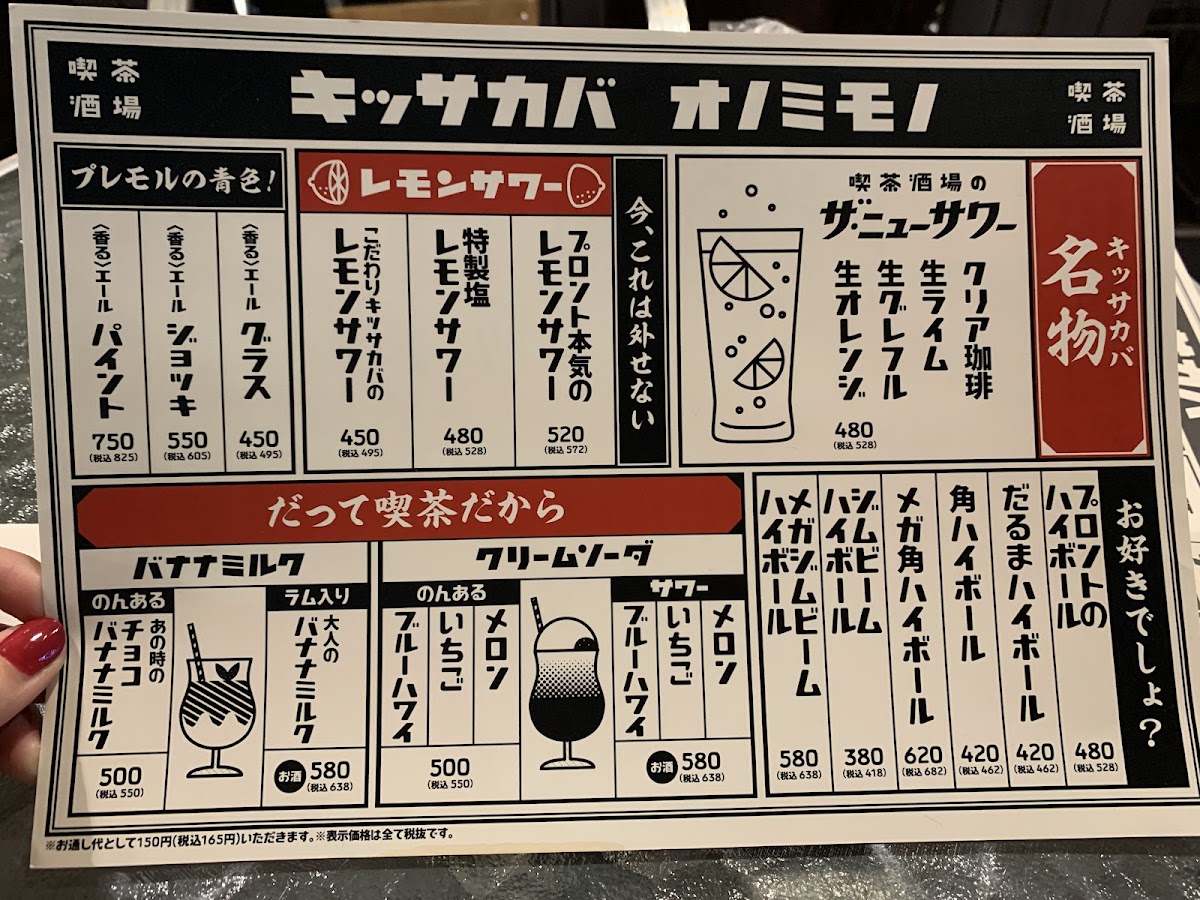 喫茶
酒場
キッサカバ オノミモノ
喫茶
酒場
キッサカバ
名物
喫茶酒場の
ザ・ニューサワー
クリア珈琲
生ライム
生グレフル
生オレンジ
480
(税込528)
今、これは外せない
レモンサワー
プロント本気の
レモンサワー
520
(税込572)
特製塩
レモンサワー
480
(税込528)
こだわりキッサカバの
レモンサワー
450
(税込495)
プレモルの青色!
〈香る〉エール グラス
450
(税込495)
〈香る〉エール ジョッキ
550
(税込605)
〈香る〉エール パイント
750
(税込825)
お好きでしょ?
プロントの
ハイボール
480
(税込528)
だるまハイボール
420
(税込462)
角ハイボール
420
(税込462)
メガ角ハイボール
620
(税込682)
ジムビーム
ハイボール
380
(税込418)
メガジムビーム
ハイボール
580
(税込638)
だって喫茶だから
クリームソーダ
サワー
メロン
いちご
ブルーハワイ
お酒 580
(税込638)
のんある
メロン
いちご
ブルーハワイ
500
(税込550)
バナナミルク
ラム入り
大人の
バナナミルク
お酒 580
(税込638)
のんある
あの時の
チョコ
バナナミルク
500
(税込550)
※お通し代として150円(税込165円)いただきます。※表示価格は全て税抜です。